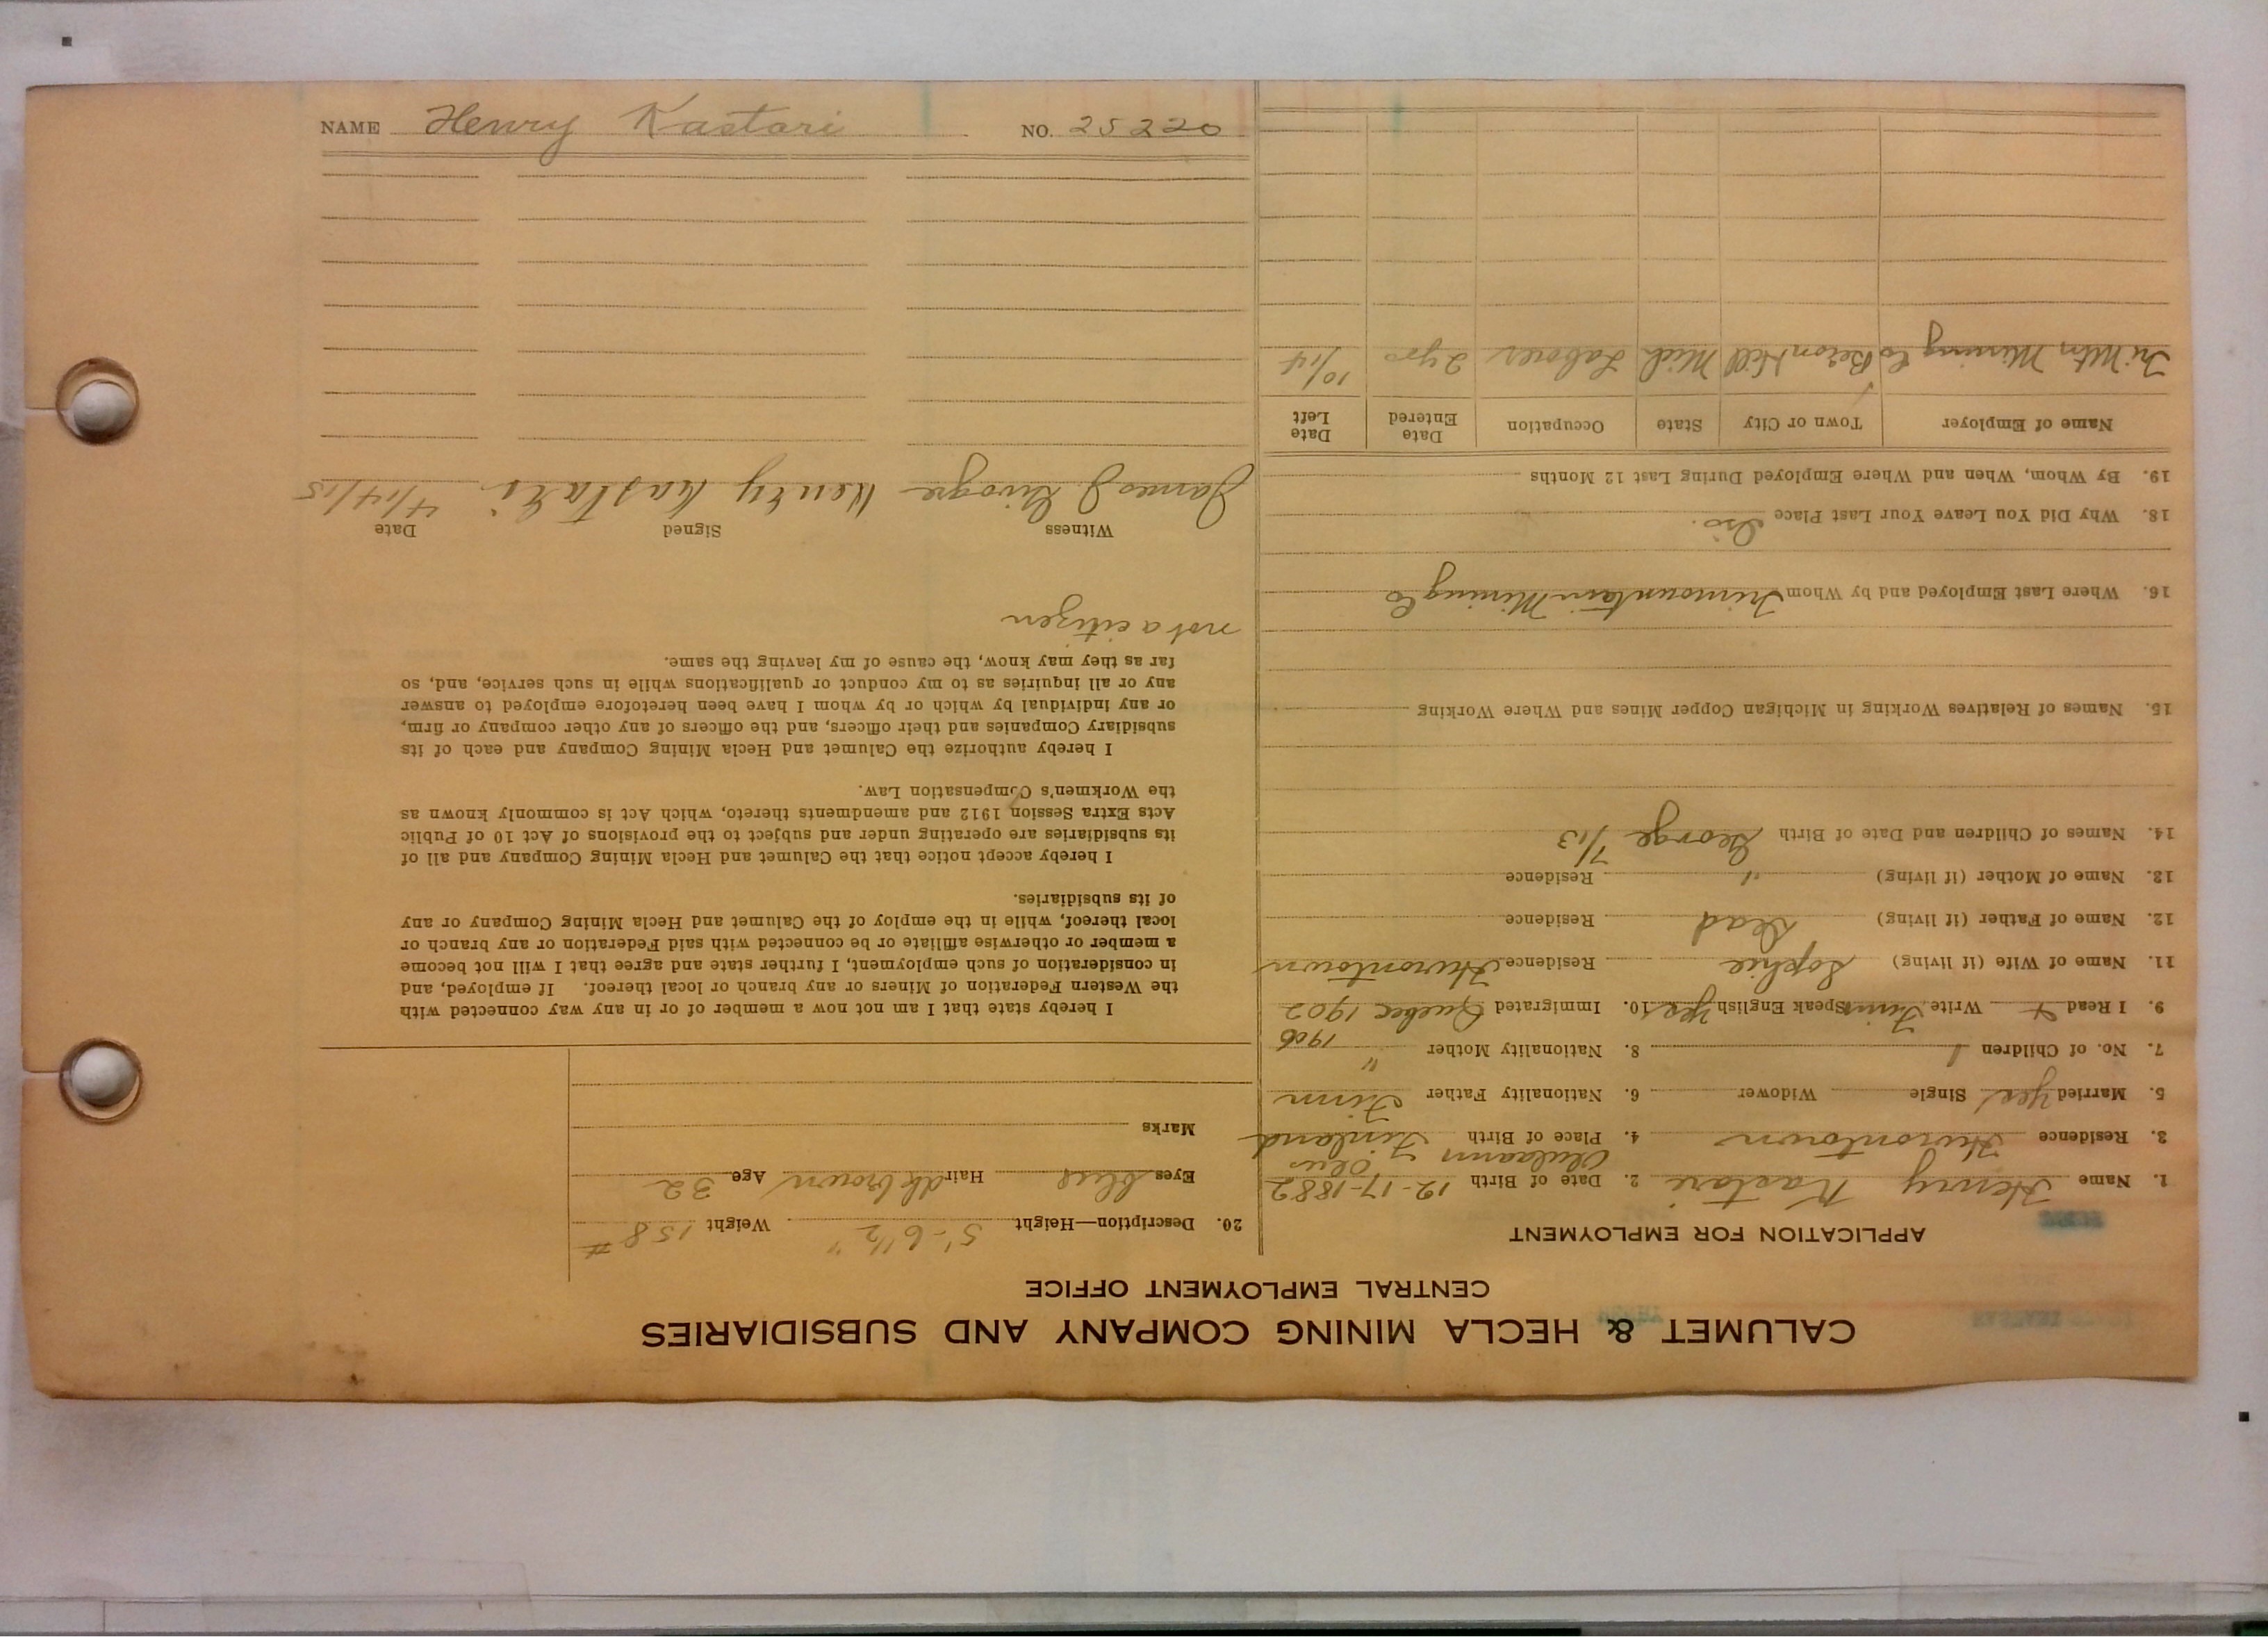 CALUMET & HECLA MINING COMPANY AND SUBSIDIARIES
CENTRAL EMPLOYMENT OFFICE
APPLICATION FOR EMPLOYMENT
1. Name Henry Kastari 2. Date of Birth 12-17-1882
3. Residence Hurontown 4. Place of Birth Finland
5. Married Yes Single Widower 6. Nationality Father Finn
7. No. of Children 1 8. Nationality Mother "
1906
9. I Read + Write Finn Speak English Yes 10. Immigrated Quebec 1902
11. Name of Wife (if living) Sophie Residence Hurontown
12. Name of Father (if living) Dead Residence
13. Name of Mother (if living) " Residence
14. Names of Children and Date of Birth George 7/13
15. Names of Relatives Working in Michigan Copper Mines and Where Working
16. Where Last Employed and by Whom Trimountain Mining Co
18. Why Did You Leave Your Last Place
19. By Whom, When and Where Employed During Last 12 Months
Name of Employer Town or City State Occupation Date Entered Date Left
Tri Mtn. Mining Co Mich Laborer 2 yrs 10/14
20. Description—Height 5'-6 1/2" Weight 158 #
Eyes blue Hair dk brown Age 32
Marks
I hereby state that I am not now a member of or in any way connected with
the Western Federation of Miners or any branch or local thereof. If employed, and
in consideration of such employment, I further state and agree that I will not become
a member or otherwise affiliate or be connected with said Federation or any branch or
local thereof, while in the employ of the Calumet and Hecla Mining Company or any
of its subsidiaries.
I hereby accept notice that the Calumet and Hecla Mining Company and all of
its subsidiaries are operating under and subject to the provisions of Act 10 of Public
Acts Extra Session 1912 and amendments thereto, which Act is commonly known as
the Workmen's Compensation Law.
I hereby authorize the Calumet and Hecla Mining Company and each of its
subsidiary Companies and their officers, and the officers of any other company or firm,
or any individual by which or by whom I have been heretofore employed to answer
any or all inquiries as to my conduct or qualifications while in such service, and, so
far as they may know, the cause of my leaving the same.
not a citizen
Witness Signed Date
James J Henry Kastari 4/14/15
NAME Henry Kastari NO. 25220